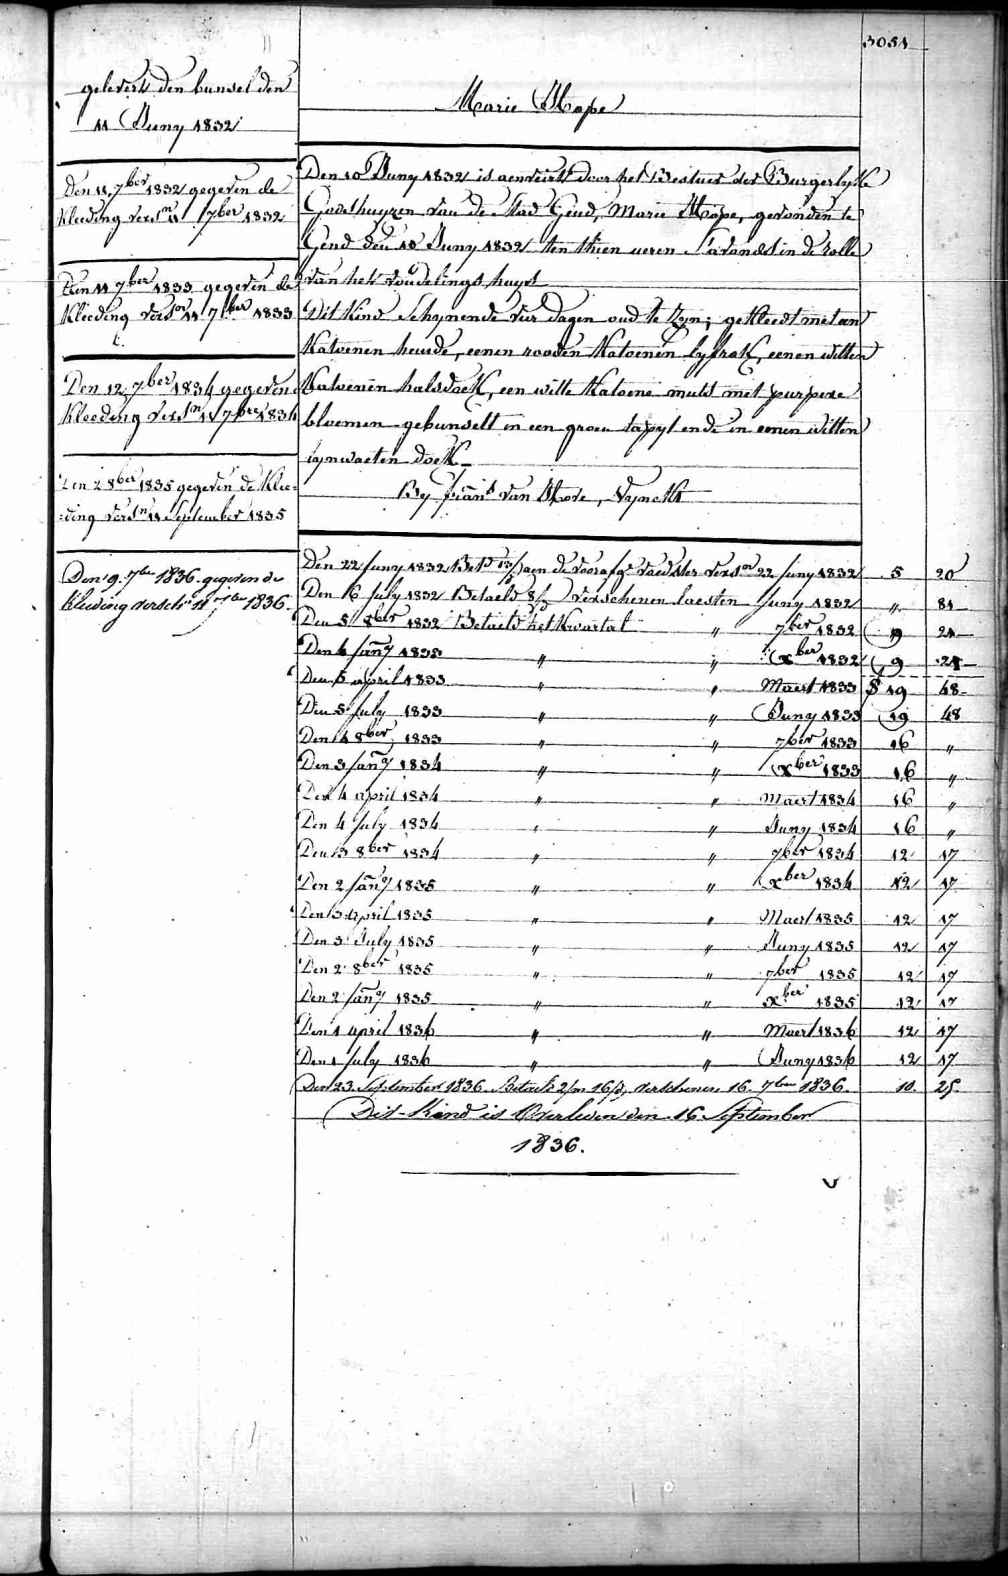 3051
gelevert den bunsel den
11 Juny 1832
Den 11 7ber 1832 gegeven de
kleeding versn 11 7ber 1832
Den 11 7ber 1833 gegeven de
kleeding versn 11 7ber 1833
Den 12 7ber 1834 gegeven
kleeding versn 11 7ber 1834
Den 2 8ber 1835 gegeven de klee=
=ding versn 11 September 1835
Den 9. 7ber 1836 gegeven de
kleeding versch 11 7ber 1836.
Marie Hope
Den 10 Juny 1832 is aenveirt door het Bestuer der Burgerlyke
Godshuyzen van de Stad Gend, Marie Hope, gevonden te
Gend den 10 Juny 1832 ten thien ueren 's avonds in de rolle
van het vondelings huys
Dit Kind schynende vier dagen oud te zyn; gekleedt met een
Katoenen hemde, eenen rooden Katoenen lyfrok, eenen witten
Katoenen halsdoek, een witte Katoene muts met purpere
bloemen gebunselt in een groen tapyt ende in eenen witten
lynwaeten doek
By frans van Hove, Vynckt
Den 22 Juny 1832 aen de voedster versn 22 Juny 1832 5 20
Den 6 July 1832 Betaeld 8/ verschenen laesten Juny 1832 " 81
Den 5 8ber 1832 Betaeld het Kwartal " 7ber 1832 9 24
Den 4 Jany 1833 " " xber 1832 9 24
Den 5 april 1833 " " Maert 1833 19 48
Den 5 July 1833 " " Juny 1833 19 48
Den 4 8ber 1833 " " 7ber 1833 16 "
Den 3 Jany 1834 " " xber 1833 16 "
Den 4 april 1834 " " Maert 1834 16 "
Den 4 July 1834 " " Juny 1834 16 "
Den 3 8ber 1834 " " 7ber 1834 12 17
Den 2 Jany 1835 " " xber 1834 12 17
Den 3 april 1835 " " Maert 1835 12 17
Den 3 July 1835 " " Juny 1835 12 17
Den 2 8ber 1835 " " 7ber 1835 12 17
Den 2 Jany 1835 " " xber 1835 12 17
Den 1 april 1836 " " Maert 1836 12 17
Den 1 July 1836 " " Juny 1836 12 17
Den 23 September 1836. Betaelt 2/m 16/d, verschenen 16. 7ber 1836. 10. 25.
Dit Kind is Overleden den 16 September
1836.